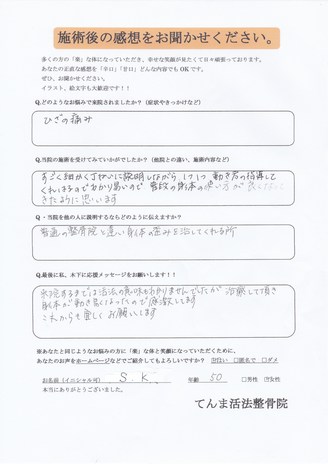 施術後の感想をお聞かせください。
多くの方の「楽」な体になっていただき、幸せな笑顔が見たくて日々頑張っております。
あなたの正直な感想を「辛口」「甘口」どんな内容でもOKです。
ぜひ、お聞かせください。
イラスト、絵文字も大歓迎です！！
Q.どのようなお悩みで来院されましたか？（症状やきっかけなど）
ひざの痛み
Q.当院の施術を受けてみていかがでしたか？（他院との違い、施術内容など）
すごく細かく丁ねいに説明しながら 1つ1つ 動き方の指導して
くれはるのでわかり易いので 普段の身体の使い方が
きたように思います
Q・当院を他の人に説明するならどのように伝えますか？
普通の整骨院と違い身体の歪みを治してくれる所
Q.最後に私、木下に応援メッセージをお願いします！！
来院するまでは活法の意味もわかりませんでしたが 治療して頂き
身体が動き易くなったので感激してます
これからも宜しくお願いします
※あなたと同じようなお悩みの方に「楽」な体と笑顔になっていただくために、
あなたのお声をホームページなどでご紹介してもよろしいですか？ ☑良い □匿名で □ダメ
お名前（イニシャル可） S.K 年齢 50 □男性 ☑女性
本当にありがとうございました。
てんま活法整骨院